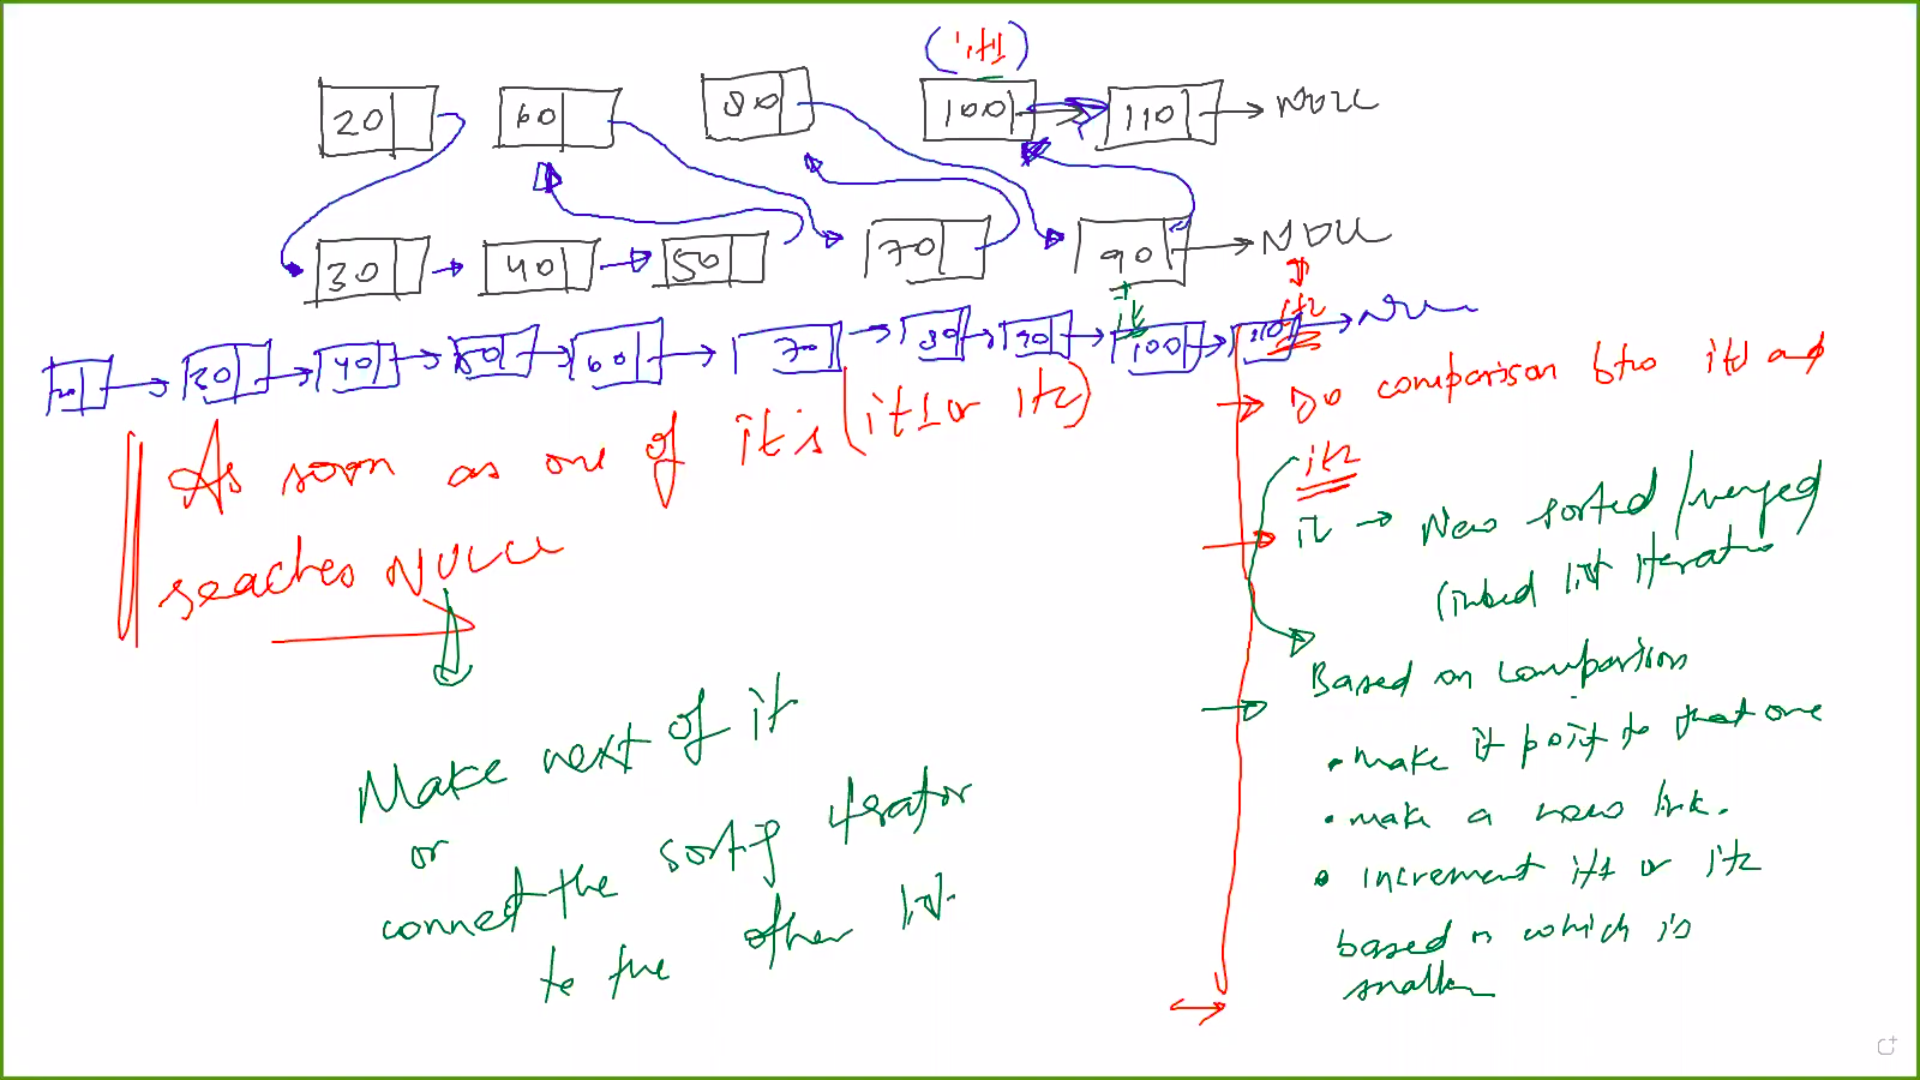 (it1)
20 60 80 100 110 → NULL
30 → 40 → 50 70 90 → NULL
it it2
20 → 30 → 40 → 50 → 60 → 70 → 80 → 90 → 100 → 110 → NULL
As soon as one of it's (it1 or it2)
reaches NULL
Make next of it
or
connect the sorting iterator
to the other list.
→ Do comparison btw it1 and
it2
→ it → New sorted/merged
linked list iterator
→ Based on comparison
• make it point to that one
• make a new link.
• increment it1 or it2
based on which is
smaller